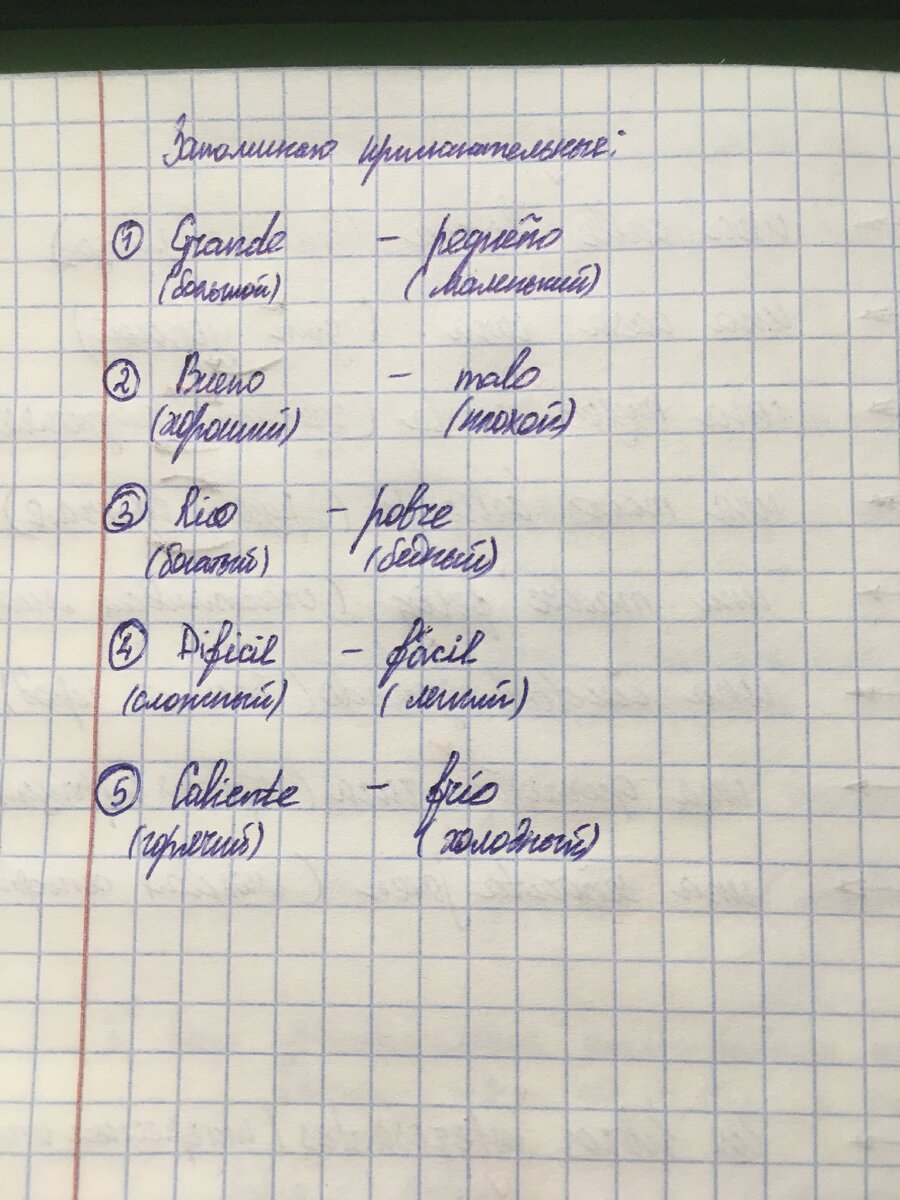 Запоминаю прилагательные:
1 Grande – pequeño
(большой) (маленький)
2 Bueno – malo
(хороший) (плохой)
3 Rico – pobre
(богатый) (бедный)
4 Dificil – fácil
(сложный) (легкий)
5 Caliente – frío
(горячий) (холодный)